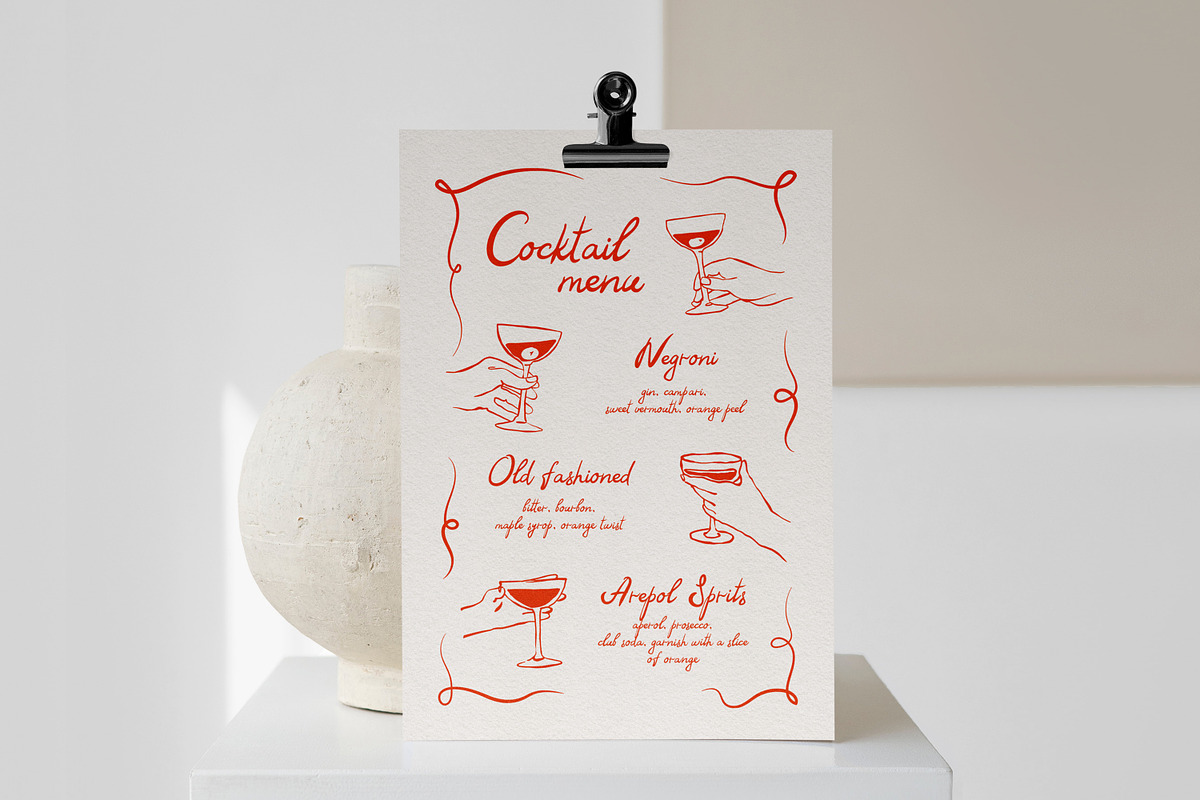 Cocktail
menu
Negroni
gin, campari,
sweet vermouth, orange peel
Old fashioned
bitter, bourbon,
maple syrop, orange twist
Arepol Sprits
aperol, prosecco,
club soda, garnish with a slice
of orange